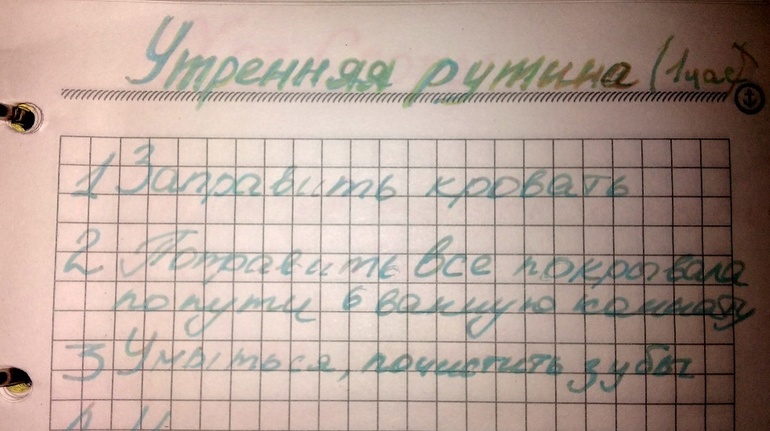 Утренняя рутина (1 час)
1 Заправить кровать
2 Поправить все покрывала
по пути в ванную комнату
3 Умыться, почистить зубы